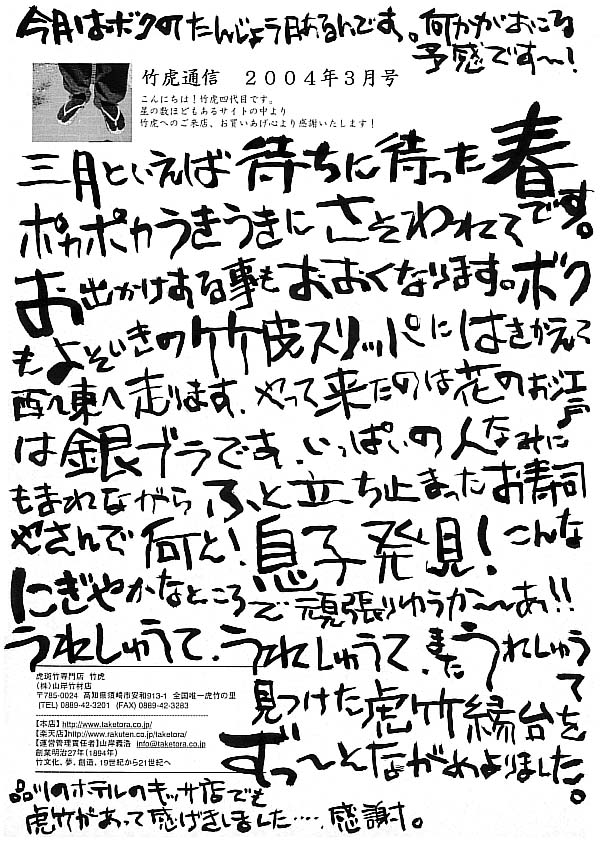 今月はボクのたんじょう月なんです。何かがおこる
予感です〜!
竹虎通信 2004年3月号
こんにちは!竹虎四代目です。
星の数ほどもあるサイトの中より
竹虎へのご来店、お買いあげ心より感謝いたします!
三月といえば待ちに待った春
です。
ポカポカうきうきにさそわれて
お出かけする事もおおくなります。ボク
もよそいきの竹皮スリッパにはきかえて
西へ東へ走ります、やって来たのは花のお江戸♪
は銀ブラです、いっぱいの人なみに
もまれながらふと立ち止まったお寿司
やさんで何と!息子発見!こんな
にぎやかなところで頑張りゆうか〜あ!!
うれしゅうて、うれしゅうて、またうれしゅうて
見つけた虎竹縁台を
ずっーとながめよりました。
虎斑竹専門店 竹虎
(株)山岸竹材店
〒785-0024 高知県須崎市安和913-1 全国唯一虎竹の里
(TEL) 0889-42-3201 (FAX) 0889-42-3283
【本店】http://www.taketora.co.jp/
【楽天店】http://www.rakuten.co.jp/taketora/
【運営管理責任者】山岸義浩 info@taketora.co.jp
創業明治27年(1894年)
竹文化、夢、創造、19世紀から21世紀へ
品川のホテルのキッサ店でも
虎竹があって感げきしました‥‥感謝。